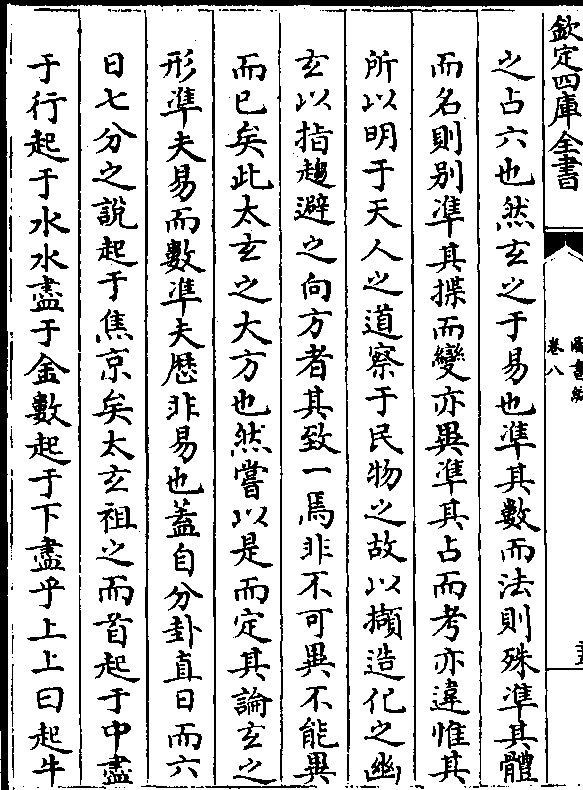 欽定四庫全書
圖書編
卷八
之占六也然玄之于易也準其數而法則殊準其體
而名則别準其揲而變亦異準其占而考亦違惟其
所以明于天人之道察于民物之故以擷造化之幽
玄以指趨避之向方者其致一焉非不可異不能異
而已矣此太玄之大方也然嘗以是而定其論玄之
形準夫易而數準夫厯非易也蓋自分卦直日而六
日七分之說起于焦京矣太玄祖之而首起于中盡
于行起于水水盡于金數起于下盡乎上上曰起牛